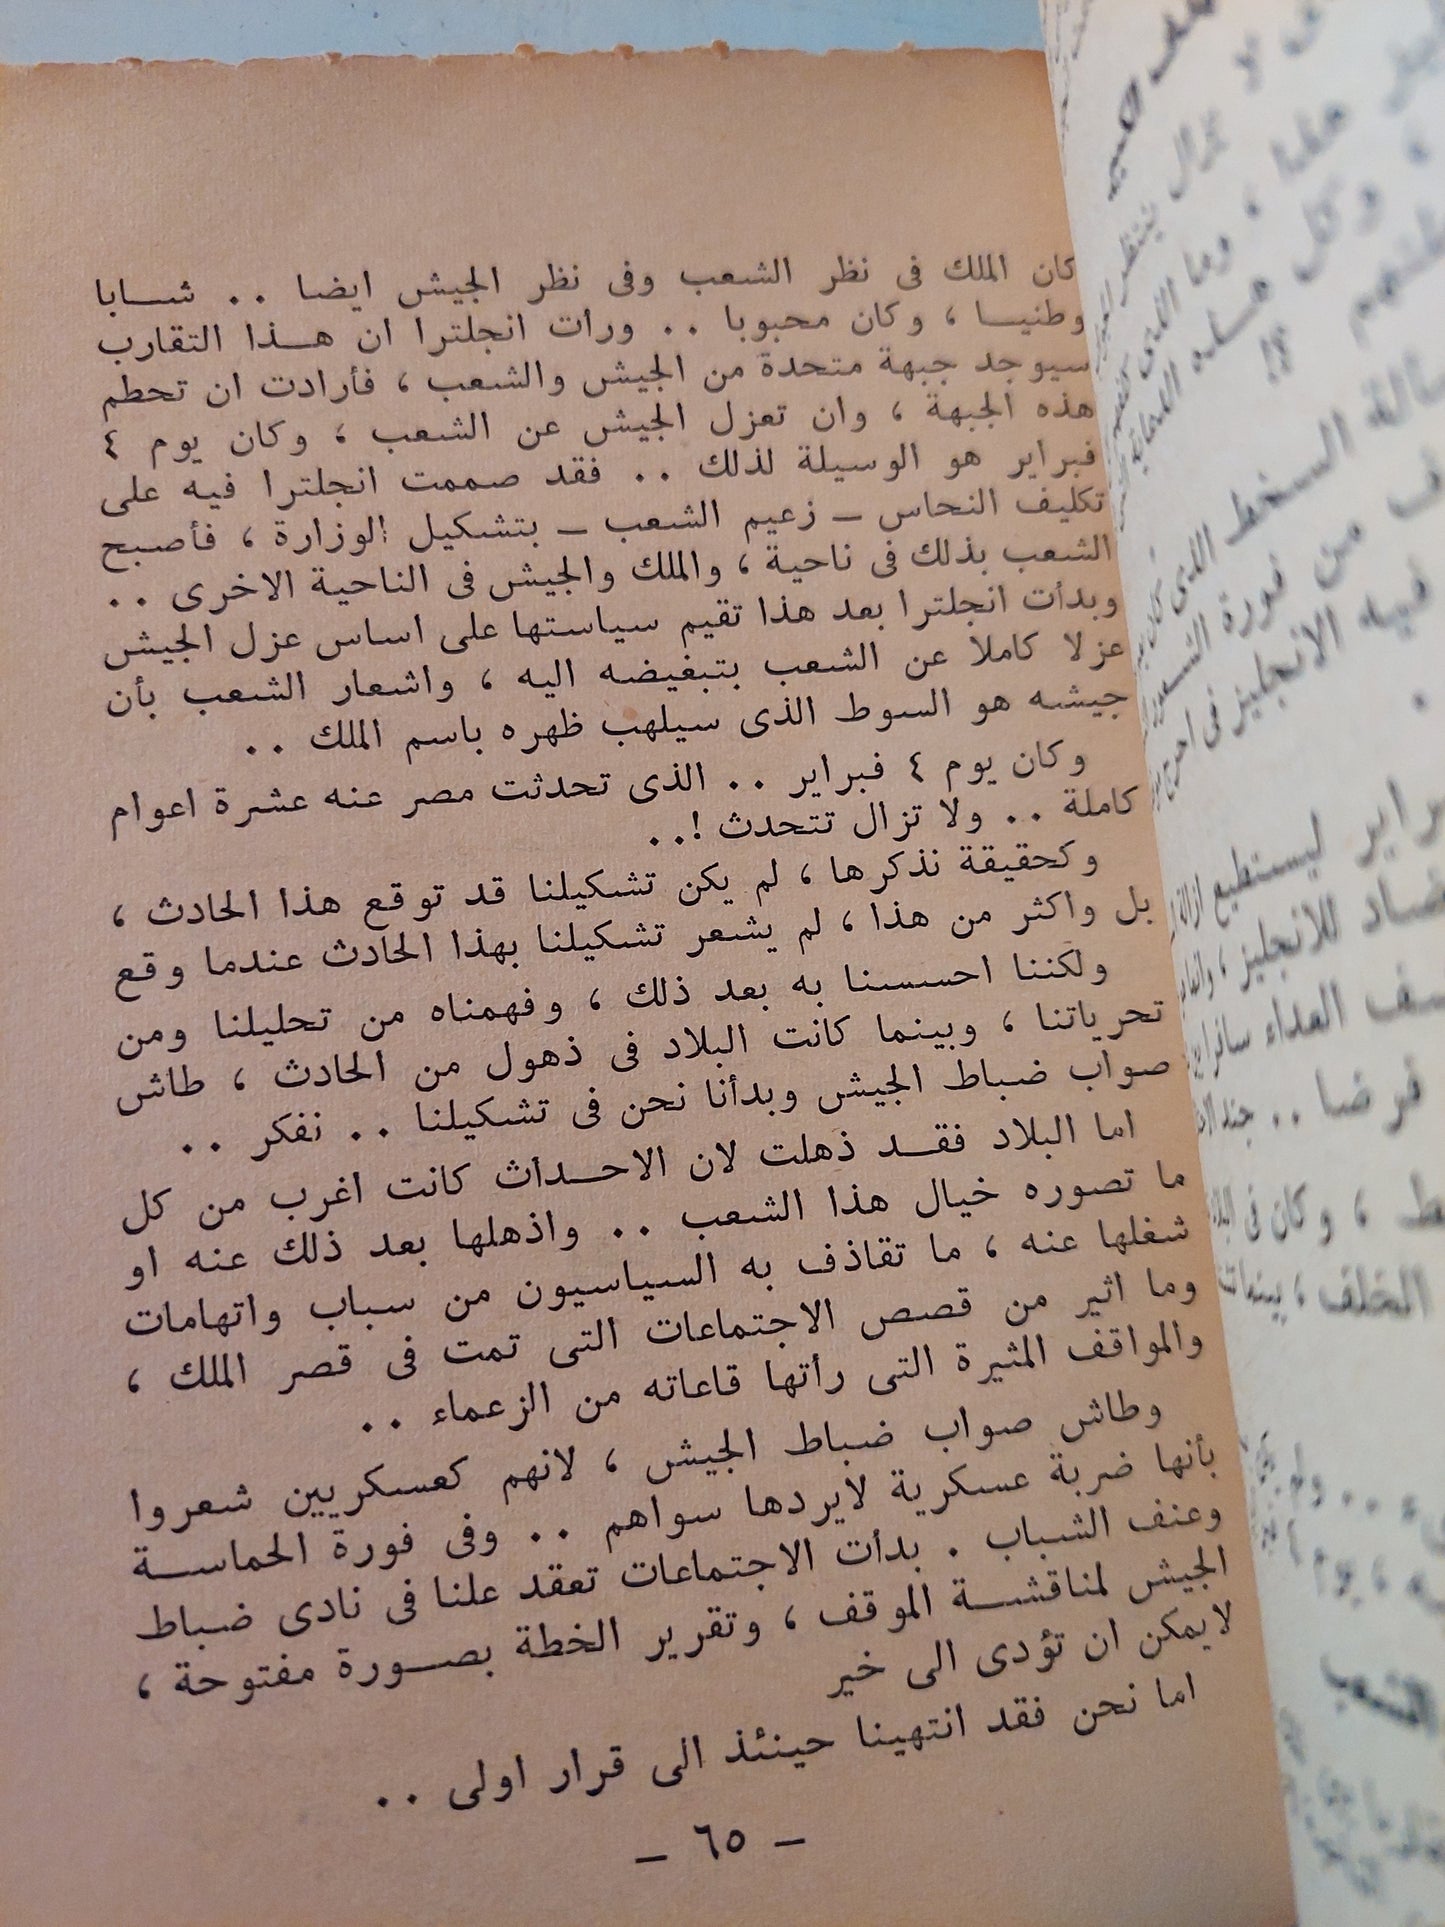 كان الملك فى نظر الشعب وفى نظر الجيش ايضا .. شابا
وطنيا ، وكان محبوبا .. ورات انجلترا ان هذا التقارب
سيوجد جبهة متحدة من الجيش والشعب ، فأرادت ان تحطم
هذه الجبهة ، وان تعزل الجيش عن الشعب ، وكان يوم ٤
فبراير هو الوسيلة لذلك .. فقد صممت انجلترا فيه على
تكليف النحاس – زعيم الشعب – بتشكيل الوزارة ، فأصبح
الشعب بذلك فى ناحية ، والملك والجيش فى الناحية الاخرى ..
وبدأت انجلترا بعد هذا تقيم سياستها على اساس عزل الجيش
عزلا كاملا عن الشعب بتبغيضه اليه ، واشعار الشعب بأن
جيشه هو السوط الذى سيلهب ظهره باسم الملك ..
وكان يوم ٤ فبراير .. الذى تحدثت مصر عنه عشرة اعوام
كاملة .. ولا تزال تتحدث !..
وكحقيقة نذكرها ، لم يكن تشكيلنا قد توقع هذا الحادث ،
بل واكثر من هذا ، لم يشعر تشكيلنا بهذا الحادث عندما وقع
ولكننا احسسنا به بعد ذلك ، وفهمناه من تحليلنا ومن
تحرياتنا ، وبينما كانت البلاد فى ذهول من الحادث ، طاش
صواب ضباط الجيش وبدأنا نحن فى تشكيلنا .. نفكر ..
اما البلاد فقد ذهلت لان الاحداث كانت اغرب من كل
ما تصوره خيال هذا الشعب .. واذهلها بعد ذلك عنه او
شغلها عنه ، ما تقاذف به السياسيون من سباب واتهامات
وما اثير من قصص الاجتماعات التى تمت فى قصر الملك ،
والمواقف المثيرة التى رأتها قاعاته من الزعماء ..
وطاش صواب ضباط الجيش ، لانهم كعسكريين شعروا
بأنها ضربة عسكرية لايردها سواهم .. وفى فورة الحماسة
وعنف الشباب . بدأت الاجتماعات تعقد علنا فى نادى ضباط
الجيش لمناقشة الموقف ، وتقرير الخطة بصورة مفتوحة ،
لايمكن ان تؤدى الى خير
اما نحن فقد انتهينا حينئذ الى قرار اولى ..
– ٦٥ –
لا تزال
وكل هذه
السخط الذى
من فورة
فيه الانجليز فى
ليستطيع
للانجليز ،
العداء
فرضا ..
، وكان فى
الخلف ،
الشعب